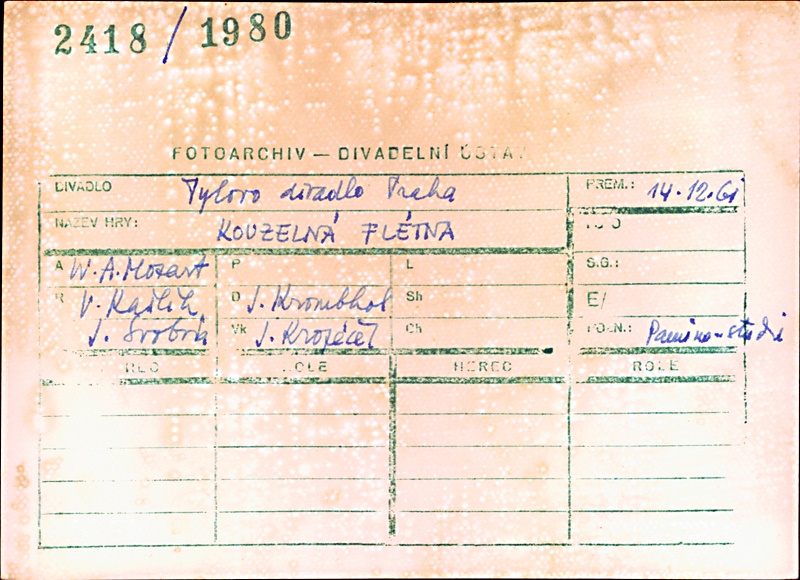 2418 / 1980
FOTOARCHIV — DIVADELNÍ ÚSTAV
DIVADLO Tylovo divadlo Praha PREM.: 14.12.61
NÁZEV HRY: KOUZELNÁ FLÉTNA
A W.A.Mozart P L S.G.:
R V. Kašlík D J. Krombhol Sh E/
J. Svoboda Vk J. Kropáček Ch POZN.: Pamina-studi
HEREC ROLE HEREC ROLE